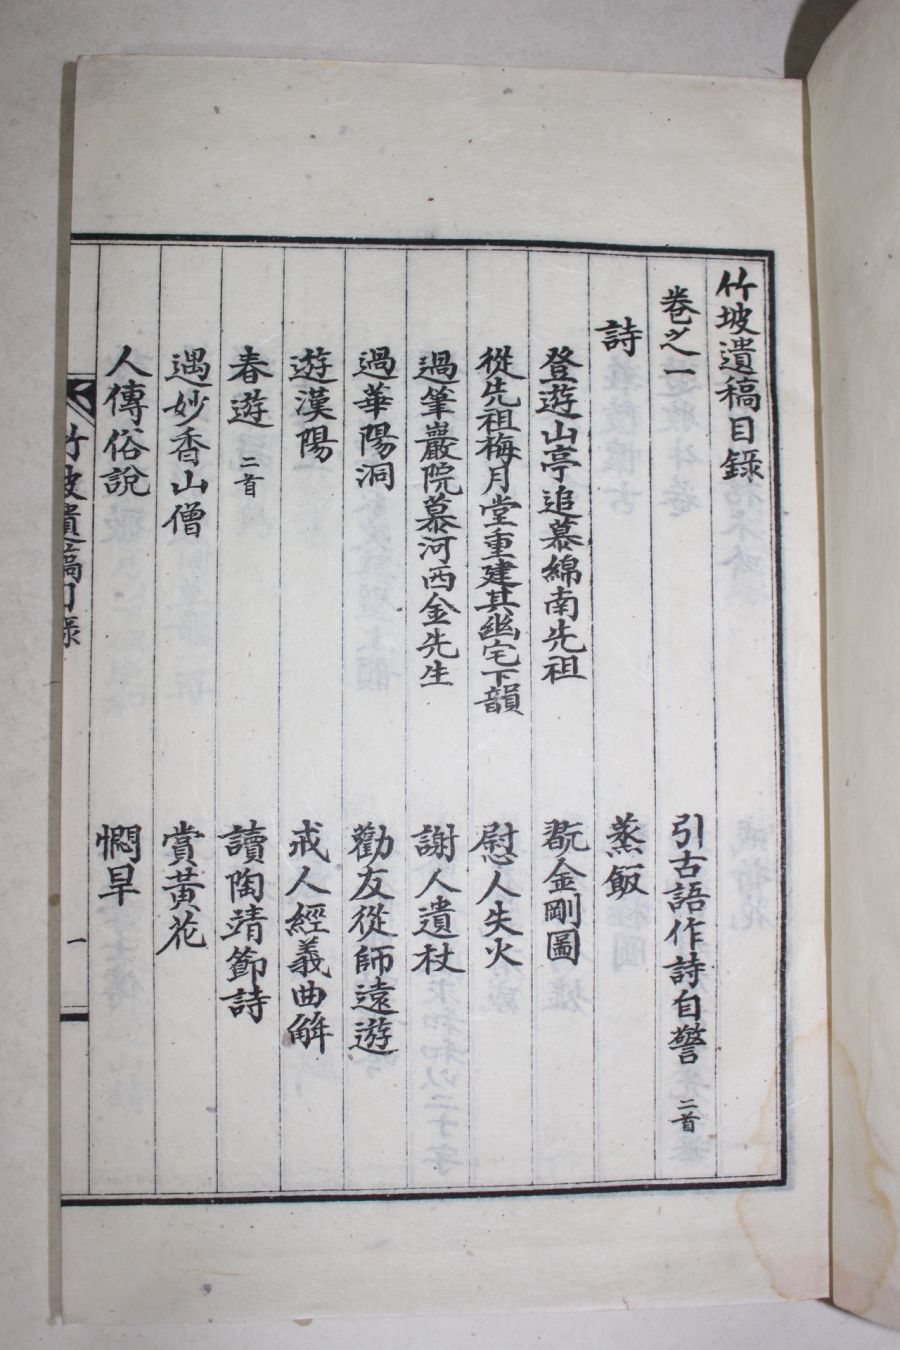 竹坡遺稿目錄
卷之一　引古語作詩自警 二首
詩　蒸飯
登遊山亭追慕綿南先祖　翫金剛圖
從先祖梅月堂重建其幽宅下韻　慰人失火
過筆巖院慕河西金先生　謝人遺杖
過華陽洞　勸友從師遠遊
遊漢陽　戒人經義曲解
春遊 二首　讀陶靖節詩
遇妙香山僧　賞黃花
人傳俗說　憫旱
竹坡遺稿目錄　一